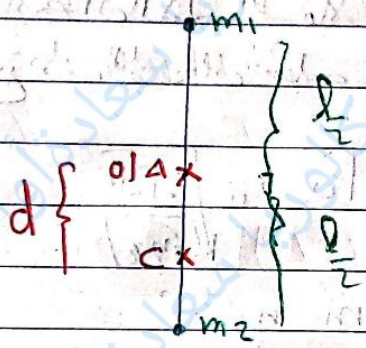 m1
l/2
d { o|Δ x
C x
l/2
m2